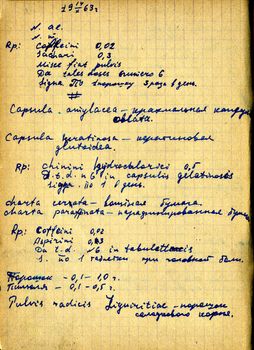 19 IV/IX 63г.
N. ae.
N.
Rp: Coffeini 0,02
Sachari 0,3
Misce fiat pulvis
Da tales doses numero 6
Signa По 1 порошку 3 раза в день.
#
Capsula amylacea – крахмальная капсула
oblata.
Capsula keratinosa – кератиновая
glutoidea.
Rp: Chinini hydrochlorici 0,5
D.t.d. N 6 in capsulis gelatinosis
Signa. По 1 в день.
charta cerata – вощёная бумага.
charta paraffinata – парафинированная бумага
Rp: Coffeini 0,02
Aspirini 0,03
Da t.d. N6 in tabulettis
S. По 1 таблетки при головной боли.
Порошок – 0,1 – 1,0 г.
Пилюля – 0,1 – 0,5 г.
Pulvis radicis Liquiritiae – порошок
солодкового корня.